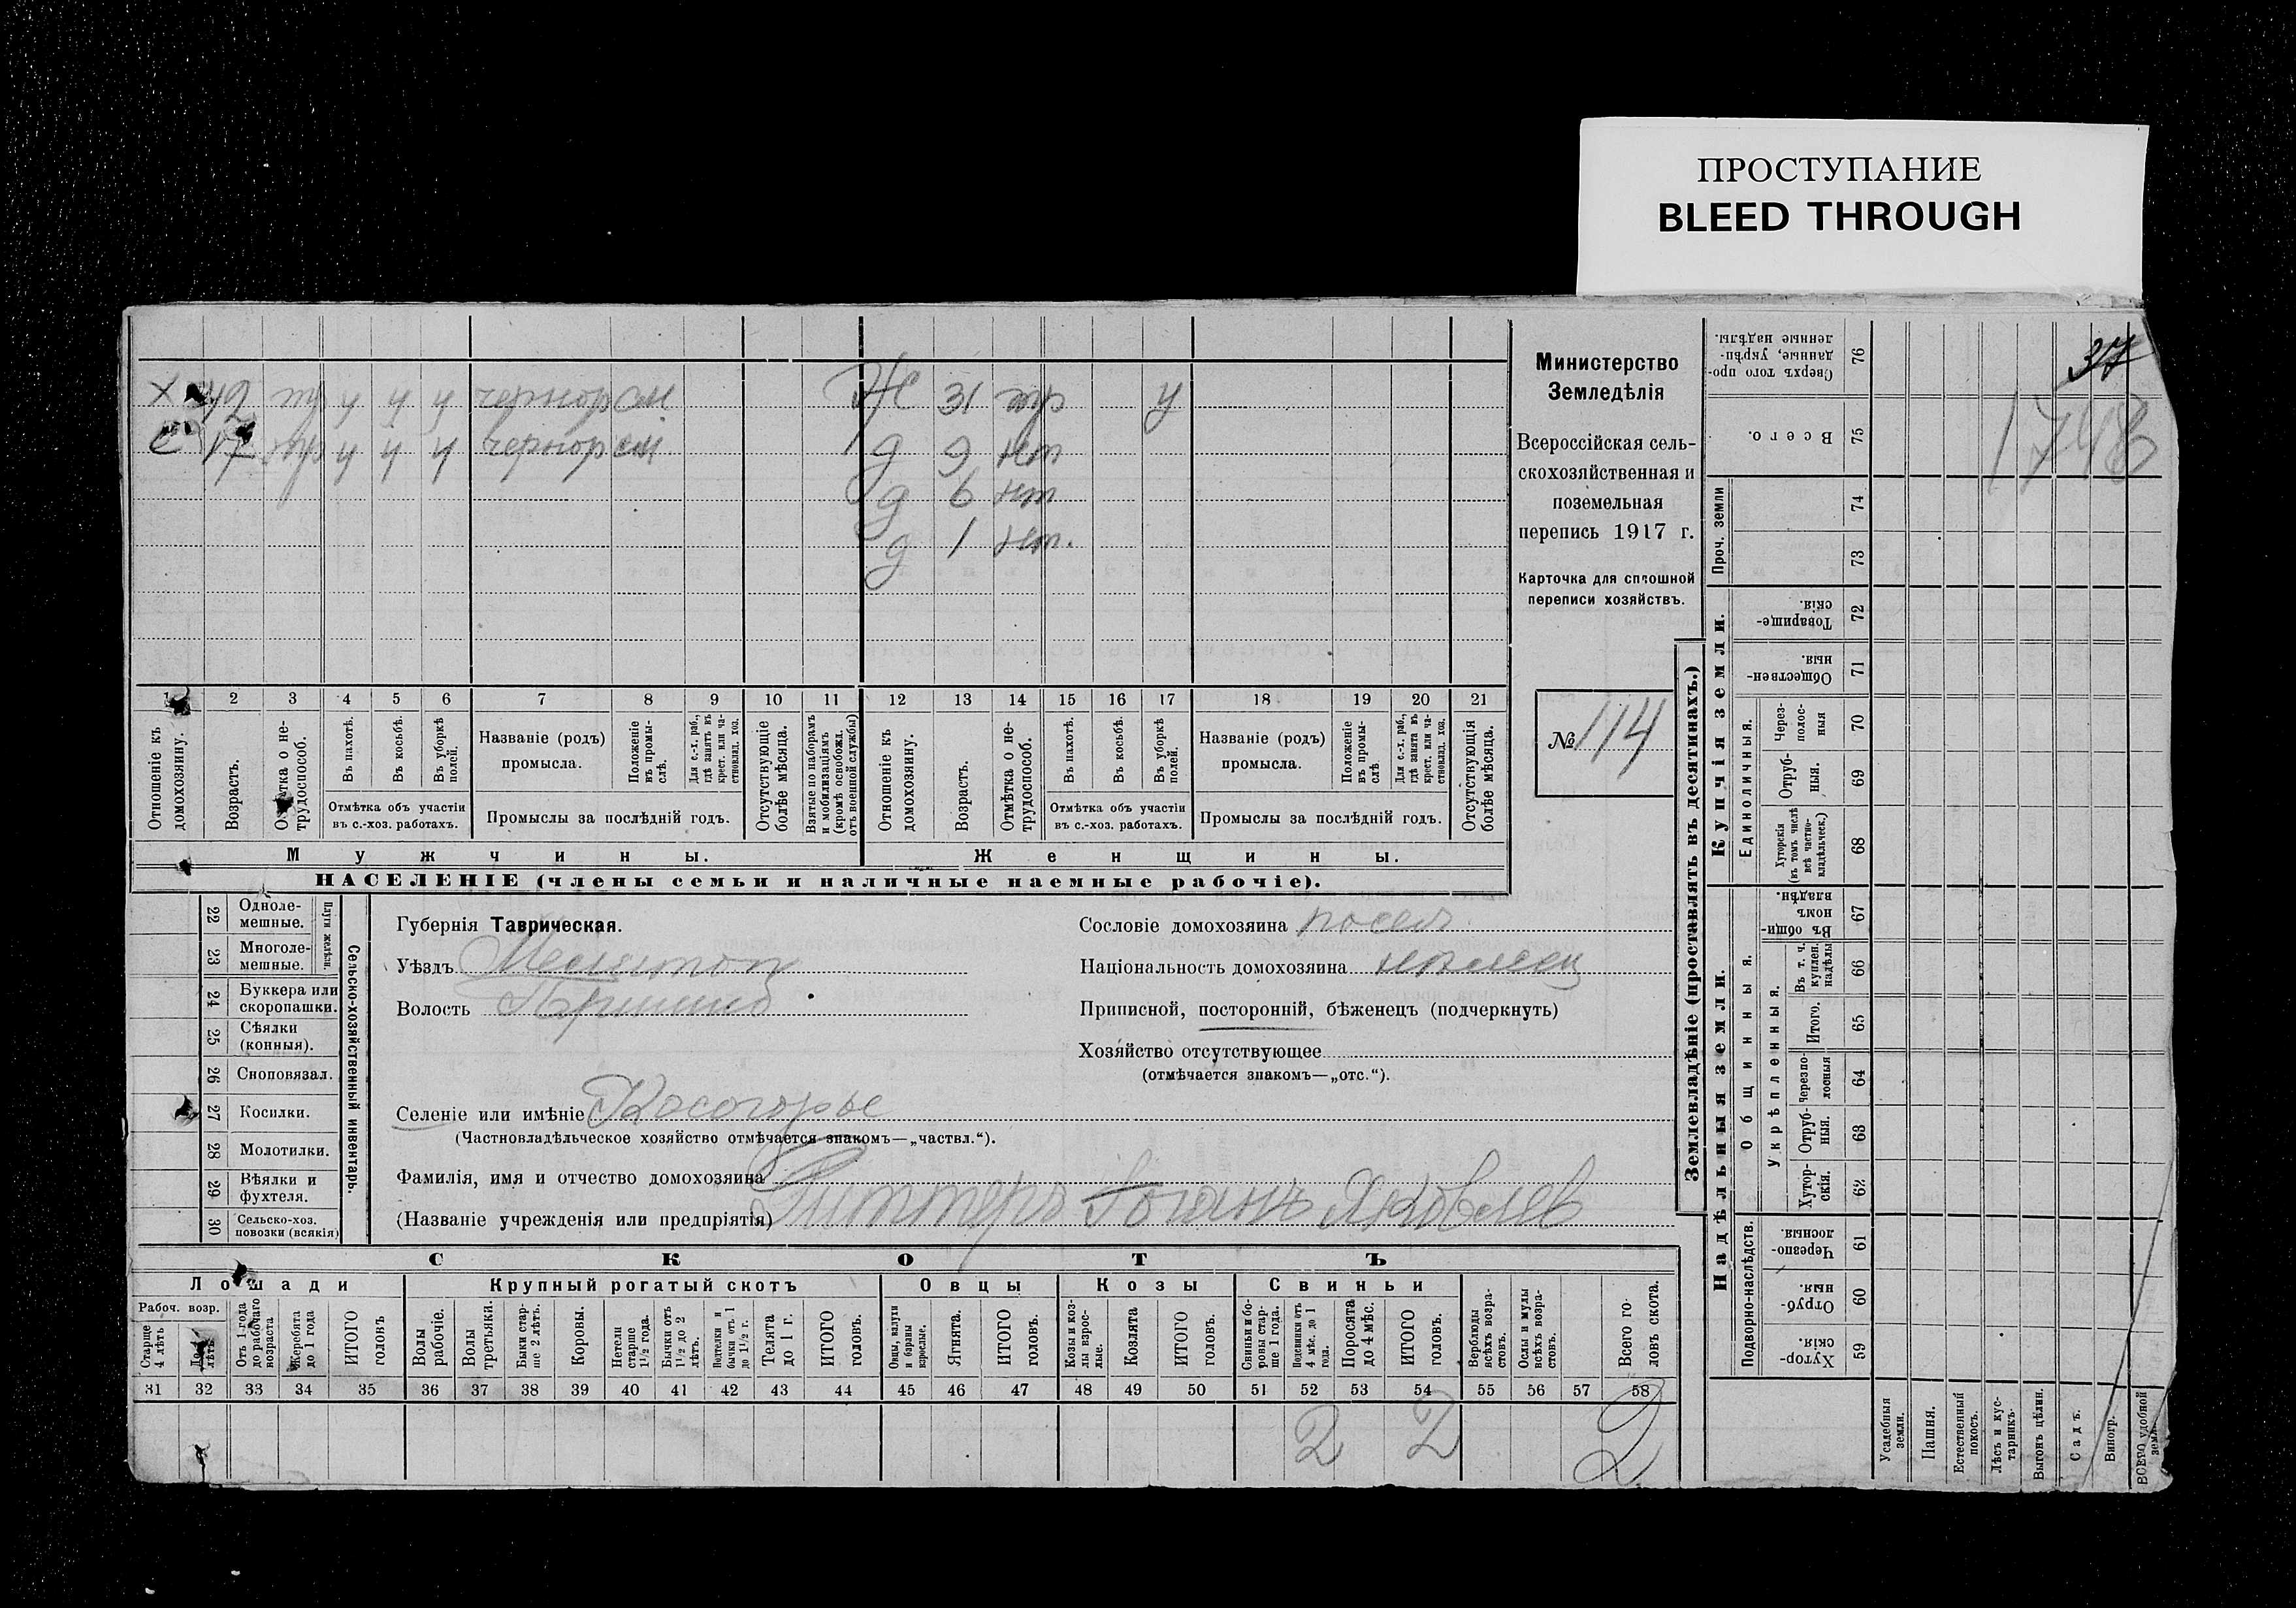 ПРОСТУПАНИЕ
BLEED THROUGH
37
1748
Х 42 тр ч ч ч чернор см
С 17 тр ч ч ч чернор см
Ж 31 тр у
д 9 нт
д 6 нт
д 1 нт.
1 2 3 4 5 6 7 8 9 10 11 12 13 14 15 16 17 18 19 20 21
Отношеніе къ домохозяину.
Возрастъ.
трудоспособ.
Въ пахотѣ.
Въ косьбѣ.
Въ уборкѣ полей.
Отмѣтка объ участіи въ с.-хоз. работахъ.
Названіе (родъ) промысла.
Положеніе въ промыслѣ.
Для с.-х. раб., гдѣ занятъ въ крест. или частновлад. хоз.
Промыслы за послѣдній годъ.
Отсутствующіе болѣе мѣсяца.
Взятые по наборамъ и мобилизаціямъ (кромѣ освобожд. отъ военной службы)
Отношеніе къ домохозяину.
Возрастъ.
Отмѣтка о нетрудоспособ.
Въ пахотѣ.
Въ косьбѣ.
Въ уборкѣ полей.
Отмѣтка объ участіи въ с.-хоз. работахъ.
Названіе (родъ) промысла.
Положеніе въ промыслѣ
Для с.-х. раб., гдѣ занята въ крест. или частновлад. хоз.
Промыслы за послѣдній годъ.
Отсутствующія болѣе мѣсяца.
Мужчины.
Женщины.
НАСЕЛЕНІЕ (члены семьи и наличные наемные рабочіе).
Министерство
Земледѣлія
Всероссійская сель-
скохозяйственная и
поземельная
перепись 1917 г.
Карточка для сплошной
переписи хозяйствъ.
№ 114
22 Однолемешные.
23 Многолемешные.
Плуги желѣзн.
24 Буккера или скоропашки.
25 Сѣялки (конныя).
26 Сноповязал.
27 Косилки.
28 Молотилки.
29 Вѣялки и фухтеля.
30 Сельско-хоз. повозки (всякія)
Сельско-хозяйственный инвентарь.
Губернія Таврическая.
Уѣздъ Мелитоп
Волость Пришиб
Селеніе или имѣніе Косогорье
(Частновладѣльческое хозяйство отмѣчается знакомъ—„частвл.“).
Фамилія, имя и отчество домохозяина
(Названіе учрежденія или предпріятія) Гиттеръ Іоганъ Яковлев
Сословіе домохозяина посел.
Національность домохозяина немец
Приписной, посторонній, бѣженецъ (подчеркнуть)
Хозяйство отсутствующее
(отмѣчается знакомъ—„отс.“).
СКОТЪ
Лошади
Крупный рогатый скотъ
Овцы
Козы
Свиньи
Рабоч. возр.
Старше 4 лѣтъ
Отъ 1 года до рабочаго возраста
Жеребята до 1 года
ИТОГО головъ
Волы рабочіе.
Волы третьяки.
Быки старше 2 лѣтъ.
Коровы.
Нетели старше 1½ года.
Бычки отъ 1½ до 2 лѣтъ.
Подтелки и бычки отъ 1 до 1½ г.
Телята до 1 г.
ИТОГО головъ.
Овцы, валухи и бараны взрослые.
Ягнята.
ИТОГО головъ.
Козы и козлы взрослые.
Козлята
ИТОГО головъ.
Свиньи и боровы старше 1 года.
Подсвинки отъ 4 мѣс. до 1 года.
Поросята до 4 мѣс.
ИТОГО головъ.
Верблюды всѣхъ возрастовъ.
Ослы и мулы всѣхъ возрастовъ.
Всего головъ скота.
31 32 33 34 35 36 37 38 39 40 41 42 43 44 45 46 47 48 49 50 51 52 53 54 55 56 57 58
2 2 2
Землевладѣніе (проставлять въ десятинахъ.)
Купчія земли.
Надѣльныя земли.
Сверхъ того проданные, укрѣпленные надѣлы. 76
Всего. 75
Проч. земли
74
73
Товарищескія. 72
Общественныя. 71
Единоличныя.
Черезполосныя 70
Отрубныя. 69
Хуторскія (въ томъ числѣ всѣ частновладѣльческ.) 68
Общинныя.
Въ общинномъ владѣн. 67
Укрѣпленныя.
Въ т. ч. куплен. надѣлы 66
Итого. 65
Черезполосныя 64
Отрубныя. 63
Хуторскія. 62
Подворно-наслѣдств.
Черезполосныя 61
Отрубныя. 60
Хуторскія. 59
Усадебныя земли.
Пашня.
Естественный покосъ.
Лѣсъ и кустарникъ.
Выгонъ цѣлин.
Садъ.
Виногр.
ВСЕГО удобной земли.